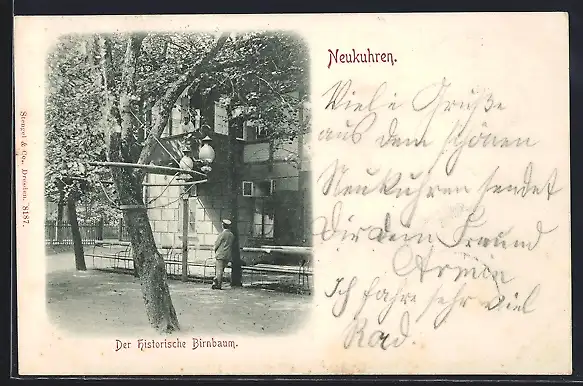 Neukuhren.
Viele Grüße
aus dem schönen
Neukuhren sendet
Dir dein Freund
Armin
Ich fahre sehr viel
Rad.
Der historische Birnbaum.
Stengel & Co., Dresden. 8187.